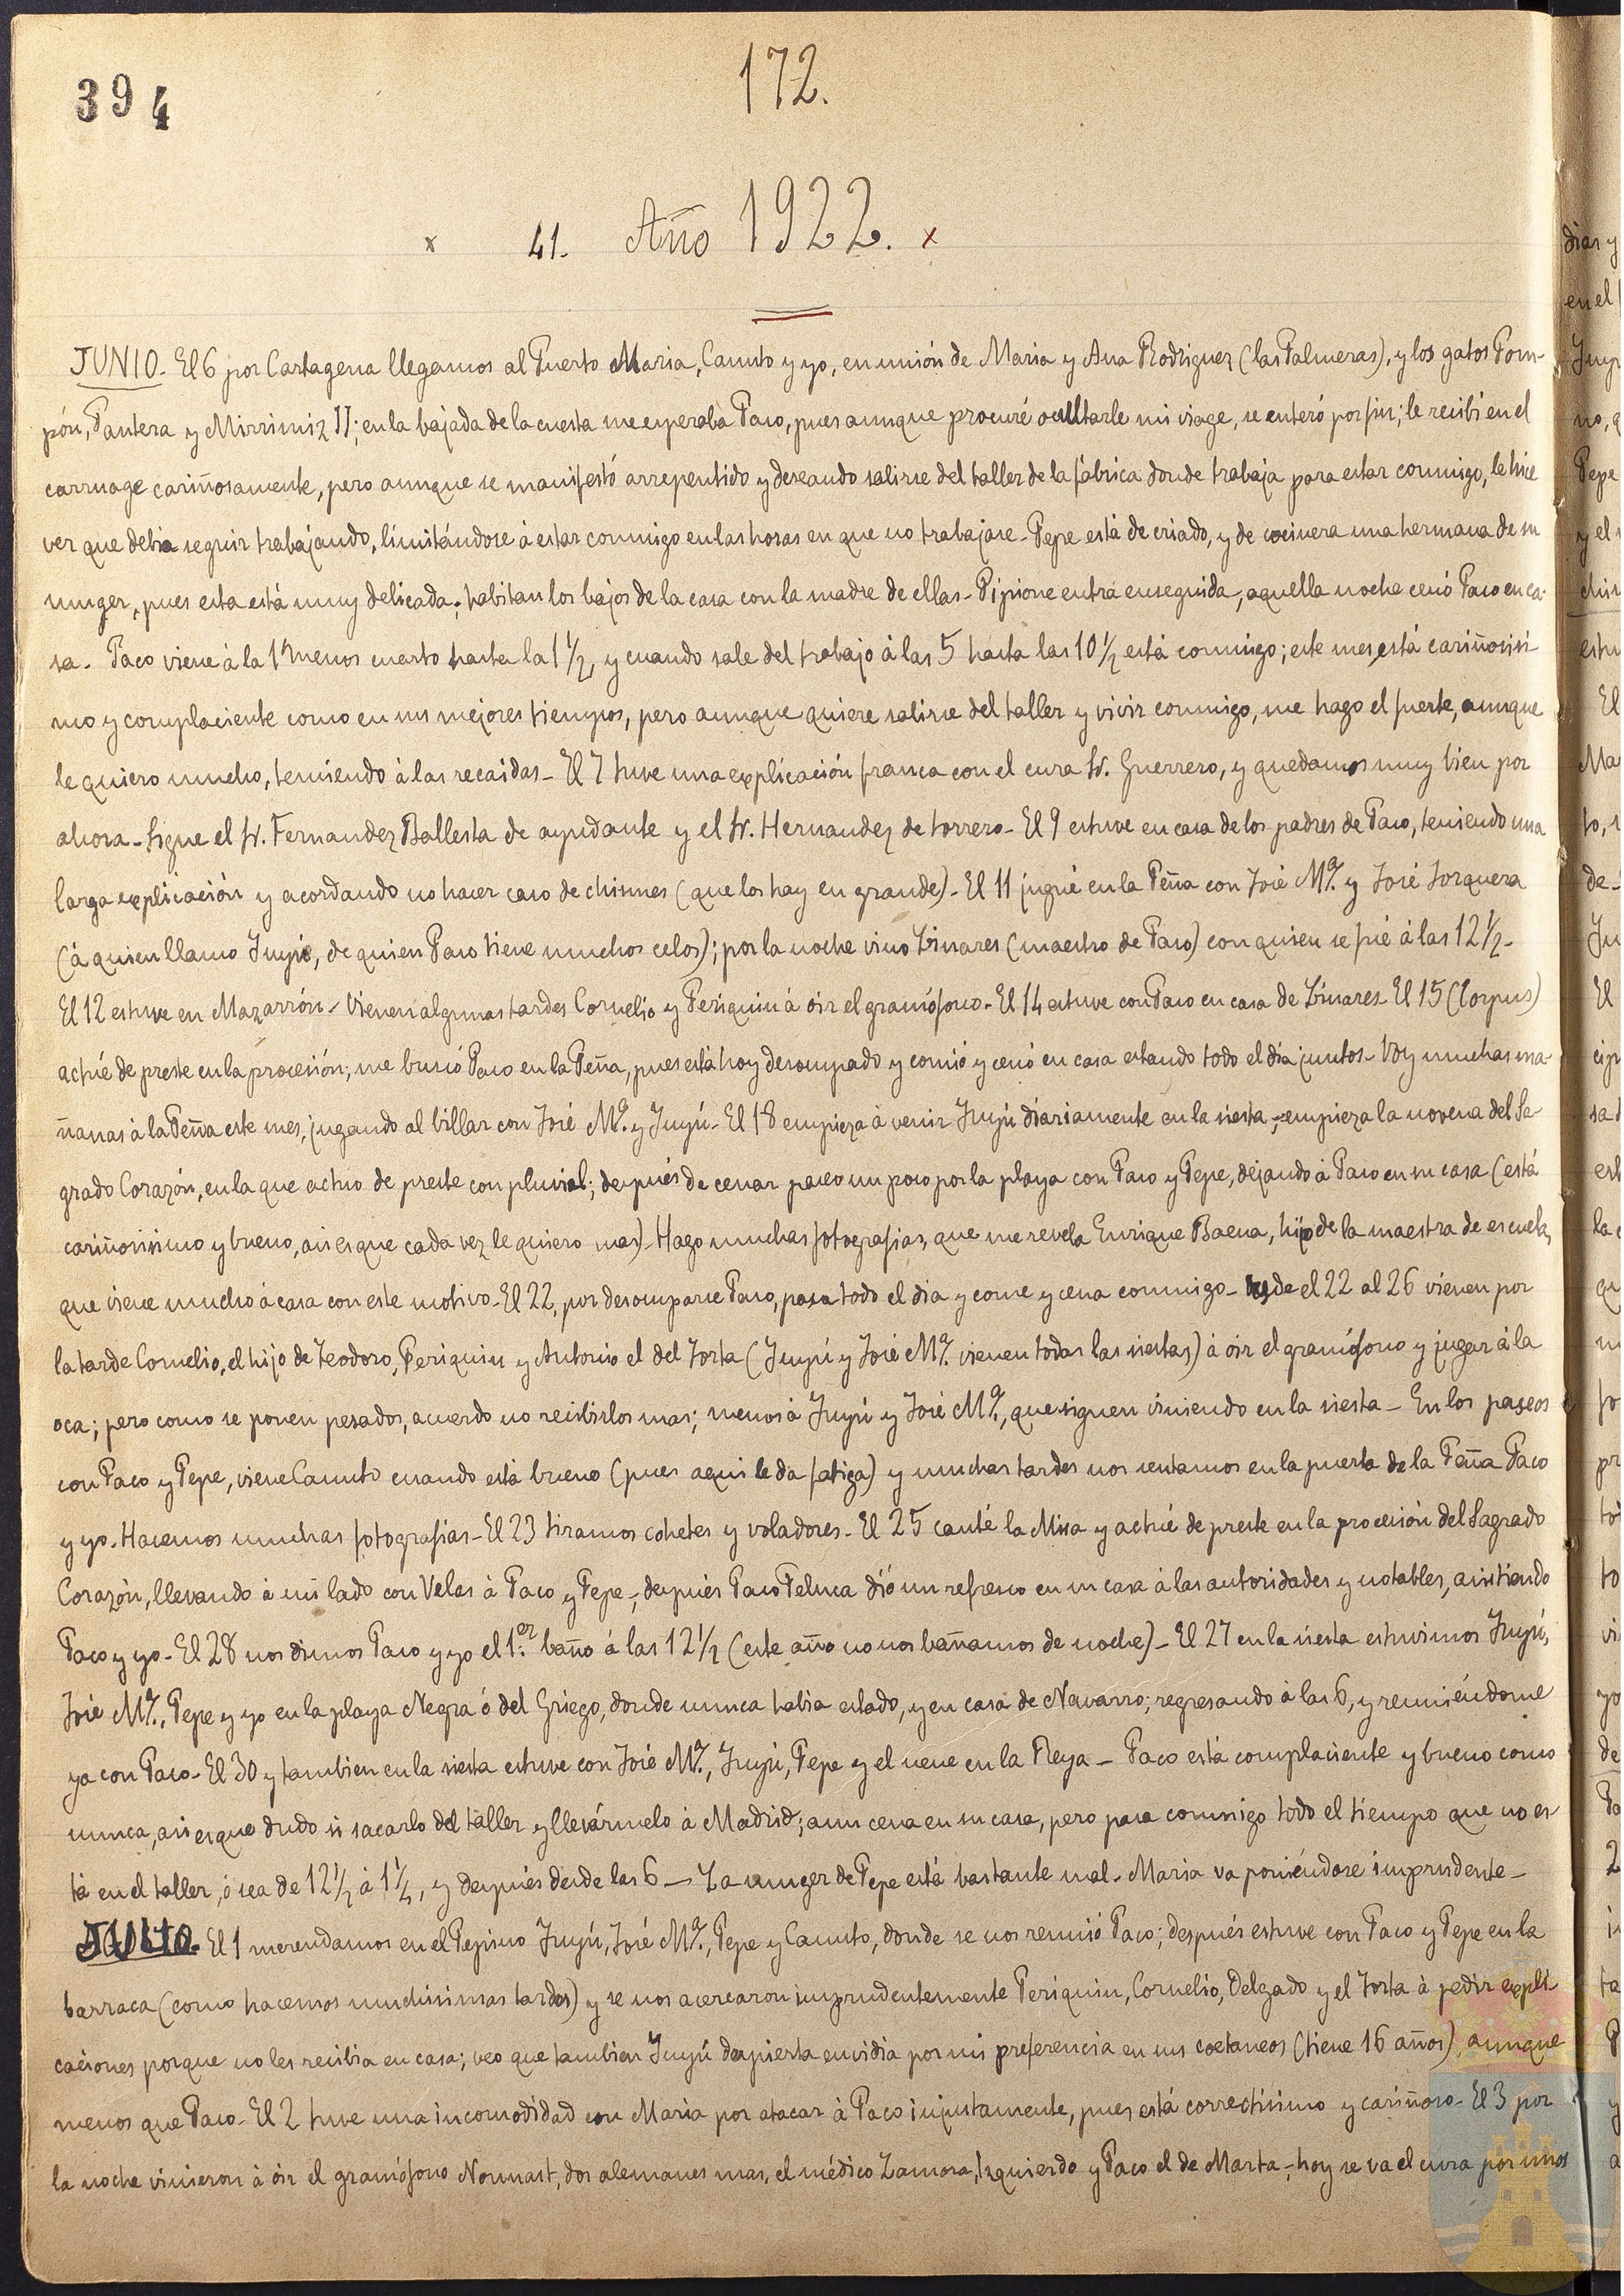 394
172.
x 41. Año 1922. x
JUNIO. El 6 por Cartagena llegamos al Puerto Maria, Canuto y yo, en unión de Maria y Ana Rodriguez (las Palmeras), y los gatos Pom-
pón, Pantera y Mirrimiz II; en la bajada de la cuesta me esperaba Paco, pues aunque procuré ocultarle mi viage, se enteró por fin; le recibí en el
carruage cariñosamente, pero aunque se manifestó arrepentido y deseando salirse del taller de la fábrica donde trabaja para estar conmigo, le hice
ver que debia seguir trabajando, limitándose à estar conmigo en las horas en que no trabajase - Pepe está de criado, y de cocinera una hermana de su
muger, pues esta está muy delicada; habitan los bajos de la casa con la madre de ellas - Pipione entra enseguida; aquella noche cenó Paco en ca-
sa. Paco viene à la 1 menos cuarto hasta la 1 1/2, y cuando sale del trabajo à las 5 hasta las 10 1/2 está conmigo; este mes está cariñosisi-
mo y complaciente como en sus mejores tiempos, pero aunque quiere salirse del taller y vivir conmigo, me hago el fuerte, aunque
le quiero mucho, temiendo à las recaidas - El 7 tuve una explicación franca con el cura Sr. Guerrero, y quedamos muy bien por
ahora - Sigue el Sr. Fernandez Ballesta de ayudante y el Sr. Hernandez de torrero - El 9 estuve en casa de los padres de Paco, teniendo una
larga explicación y acordando no hacer caso de chismes (que los hay en grande) - El 11 jugué en la Peña con José Mª. y José Jorquera
(à quien llamo Juyú, de quien Paco tiene muchos celos); por la noche vino Linares (maestro de Paco) con quien se fué à las 12 1/2 -
El 12 estuve en Mazarrón - Vienen algunas tardes Cornelio y Periquin à oir el gramófono - El 14 estuve con Paco en casa de Linares - El 15 (Corpus)
actué de preste en la procesión; me buscó Paco en la Peña, pues está hoy desocupado y comió y cenó en casa estando todo el día juntos - Voy muchas ma-
ñanas à la Peña este mes, jugando al billar con José Mª. y Juyú - El 18 empieza à venir Juyú diariamente en la siesta; empieza la novena del Sa-
grado Corazón, en la que actuo de preste con pluvial; después de cenar paseo un poco por la playa con Paco y Pepe, dejando à Paco en su casa (está
cariñosisimo y bueno, asi es que cada vez le quiero mas) - Hago muchas fotografias, que me revela Enrique Baena, hijo de la maestra de escuela,
que viene mucho à casa con este motivo - El 22, por desocuparse Paco, pasa todo el dia y come y cena conmigo - desde el 22 al 26 vienen por
la tarde Cornelio, el hijo de Teodoro, Periquin y Antonio el del Torta (Juyú y José Mª. vienen todas las siestas) à oir el gramófono y jugar à la
oca; pero como se ponen pesados, acuerdo no recibirlos mas; menos à Juyú y José Mª., que siguen viniendo en la siesta - En los paseos
con Paco y Pepe, viene Canuto cuando está bueno (pues aqui le da fatiga) y muchas tardes nos sentamos en la puerta de la Peña Paco
y yo. Hacemos muchas fotografias - El 23 tiramos cohetes y voladores - El 25 canté la Misa y actué de preste en la procesión del Sagrado
Corazón, llevando à mi lado con velas à Paco y Pepe; después Paco Peluca dió un refresco en su casa à las autoridades y notables, asistiendo
Paco y yo - El 28 nos dimos Paco y yo el 1.er baño à las 12 1/2 (este año no nos bañamos de noche) - El 27 en la siesta estuvimos Juyú,
José Mª., Pepe y yo en la playa Negra ó del Griego, donde nunca habia estado, y en casa de Navarro; regresando à las 6, y reuniéndome
ya con Paco - El 30 y tambien en la siesta estuve con José Mª., Juyú, Pepe y el nene en la Reya - Paco está complaciente y bueno como
nunca, asi es que dudo si sacarlo del taller y llevármelo à Madrid; aun cena en su casa, pero pasa conmigo todo el tiempo que no es-
tá en el taller, ó sea de 12 1/2 à 1 1/4, y después desde las 6 - La muger de Pepe está bastante mal - Maria va poniéndose imprudente -
JULIO. El 1 merendamos en el Pepino Juyú, José Mª., Pepe y Canuto, donde se nos reunió Paco; después estuve con Paco y Pepe en la
barraca (como hacemos muchisimas tardes) y se nos acercaron imprudentemente Periquin, Cornelio, Delgado y el Torta à pedir expli-
caciones porque no les recibia en casa; veo que tambien Juyú despierta envidia por mi preferencia en sus coetaneos (tiene 16 años), aunque
menos que Paco - El 2 tuve una incomodidad con Maria por atacar à Paco injustamente, pues está correctisimo y cariñoso - El 3 por
la noche vinieron à oir el gramófono Nonnast, dos alemanes mas, el médico Zamora, Izquierdo y Paco el de Marta; hoy se va el cura por unos